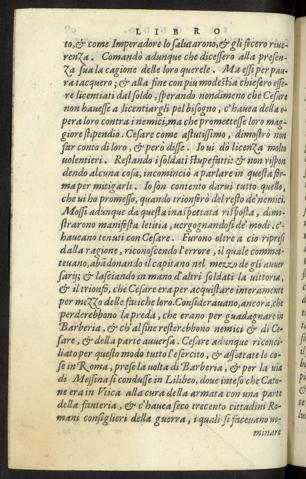 LIBRO
to, & come Imperadore lo salutarono, & gli fecero riue-
renza. Comandò adunque che dicessero alla presen-
za sua la cagione delle loro querele. Ma essi per pau-
ra tacquero; & alla fine con piu modestia chiesero esse-
re licentiati dal soldo, sperando nondimeno che Cesare
non hauesse a licentiargli pel bisogno, c'hauea della o-
pera loro contra i nemici, ma che promettesse loro mag-
giore stipendio. Cesare come astutissimo, dimostrò non
far conto di loro, & però disse. Io ui dò licenza molto
uolentieri. Restando i soldati stupefatti: & non rispon
dendo alcuna cosa, incominciò a parlare in questa for-
ma per mitigarli. Io son contento darui tutto quello,
che ui ho promesso, quando trionferò del resto de nemici.
Mossi adunque da questa inaspettata risposta, dimo-
strarono manifesta letitia, uergognandosi de' modi, c'-
haueano tenuti con Cesare. Furono oltre a cio ripresi
dalla ragione, riconoscendo l'errore, il quale commet-
teuano, abādonando il capitano nel mezzo de gli auer
sarij; & lasciando in mano d'altri soldati la uittoria,
& il trionfo, che Cesare era per acquistare interamente
per mezzo delle fatiche loro. Considerauano, ancora, che
perderebbono la preda, che erano per guadagnare in
Barberia, & ch'al fine resterebbono nemici & di Ce-
sare, & della parte auuersa. Cesare adunque riconci-
liato per questo modo tutto l'esercito, & assettate le co-
se in Roma, prese la uolta di Barberia, & per la uia
di Messina si condusse in Lilibeo, doue inteso che Cato-
ne era in Vtica alla cura della armata con una parte
della fanteria, & c'hauea seco trecento cittadini Ro-
mani consiglieri della guerra, i quali si faceuano no-
minare